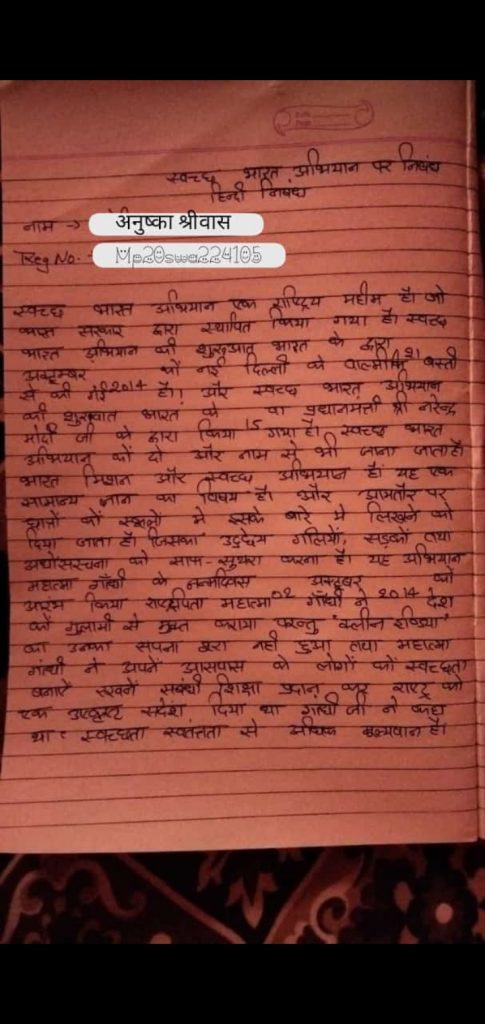 स्वच्छ भारत अभियान पर निबंध
हिन्दी निबंध
नाम → अनुष्का श्रीवास
Reg No. - Mp20swa224105
स्वच्छ भारत अभियान एक राष्ट्रिय महीम है। जो
भारत सरकार द्वारा स्थापित किया गया है। स्वच्छ
भारत अभियान की शुरुआत भारत के द्वारा,
अक्टूबर को नई दिल्ली के वाल्मीकि बस्ती
से की गई 2014 है।। और स्वच्छ भारत अभियान
की शुरुवात भारत के वा प्रधानमंत्री श्री नरेन्द्र
मोदी जी के द्वारा किया 15 गया है। स्वच्छ भारत
अभियान कों दो और नाम से भी जाना जाता है।
भारत मिशन और स्वच्छ अभियान है। यह एक
सामान्य ज्ञान का विषय है। और, आमतौर पर
छात्रों कों स्कूलों मे इसके बारे मे लिखने को
दिया जाता है। जिसका उद्देश्य गलियों, सड़कों तथा
अधोसंरचना को साफ-सुथरा करना है। यह अभियान
महात्मा गाँधी के जन्मदिवस अक्टूबर को
आरंभ किया राष्ट्रपिता महात्मा 02 गाँधी ने 2014 देश
कों गुलामी से मुक्त कराया परन्तु 'क्लीन इण्डिया'
का उनका सपना पूरा नही हुआ तथा महात्मा
गांधी ने अपने आसपास के लोगों कों स्वच्छता
बनाएँ रखनें संबंधी शिक्षा प्रदान कर राष्ट्र को
एक उत्कृष्ट संदेश दिया था गांधी जी ने कहा
था : स्वच्छता स्वतंतता से अधिक मूल्यवान है।